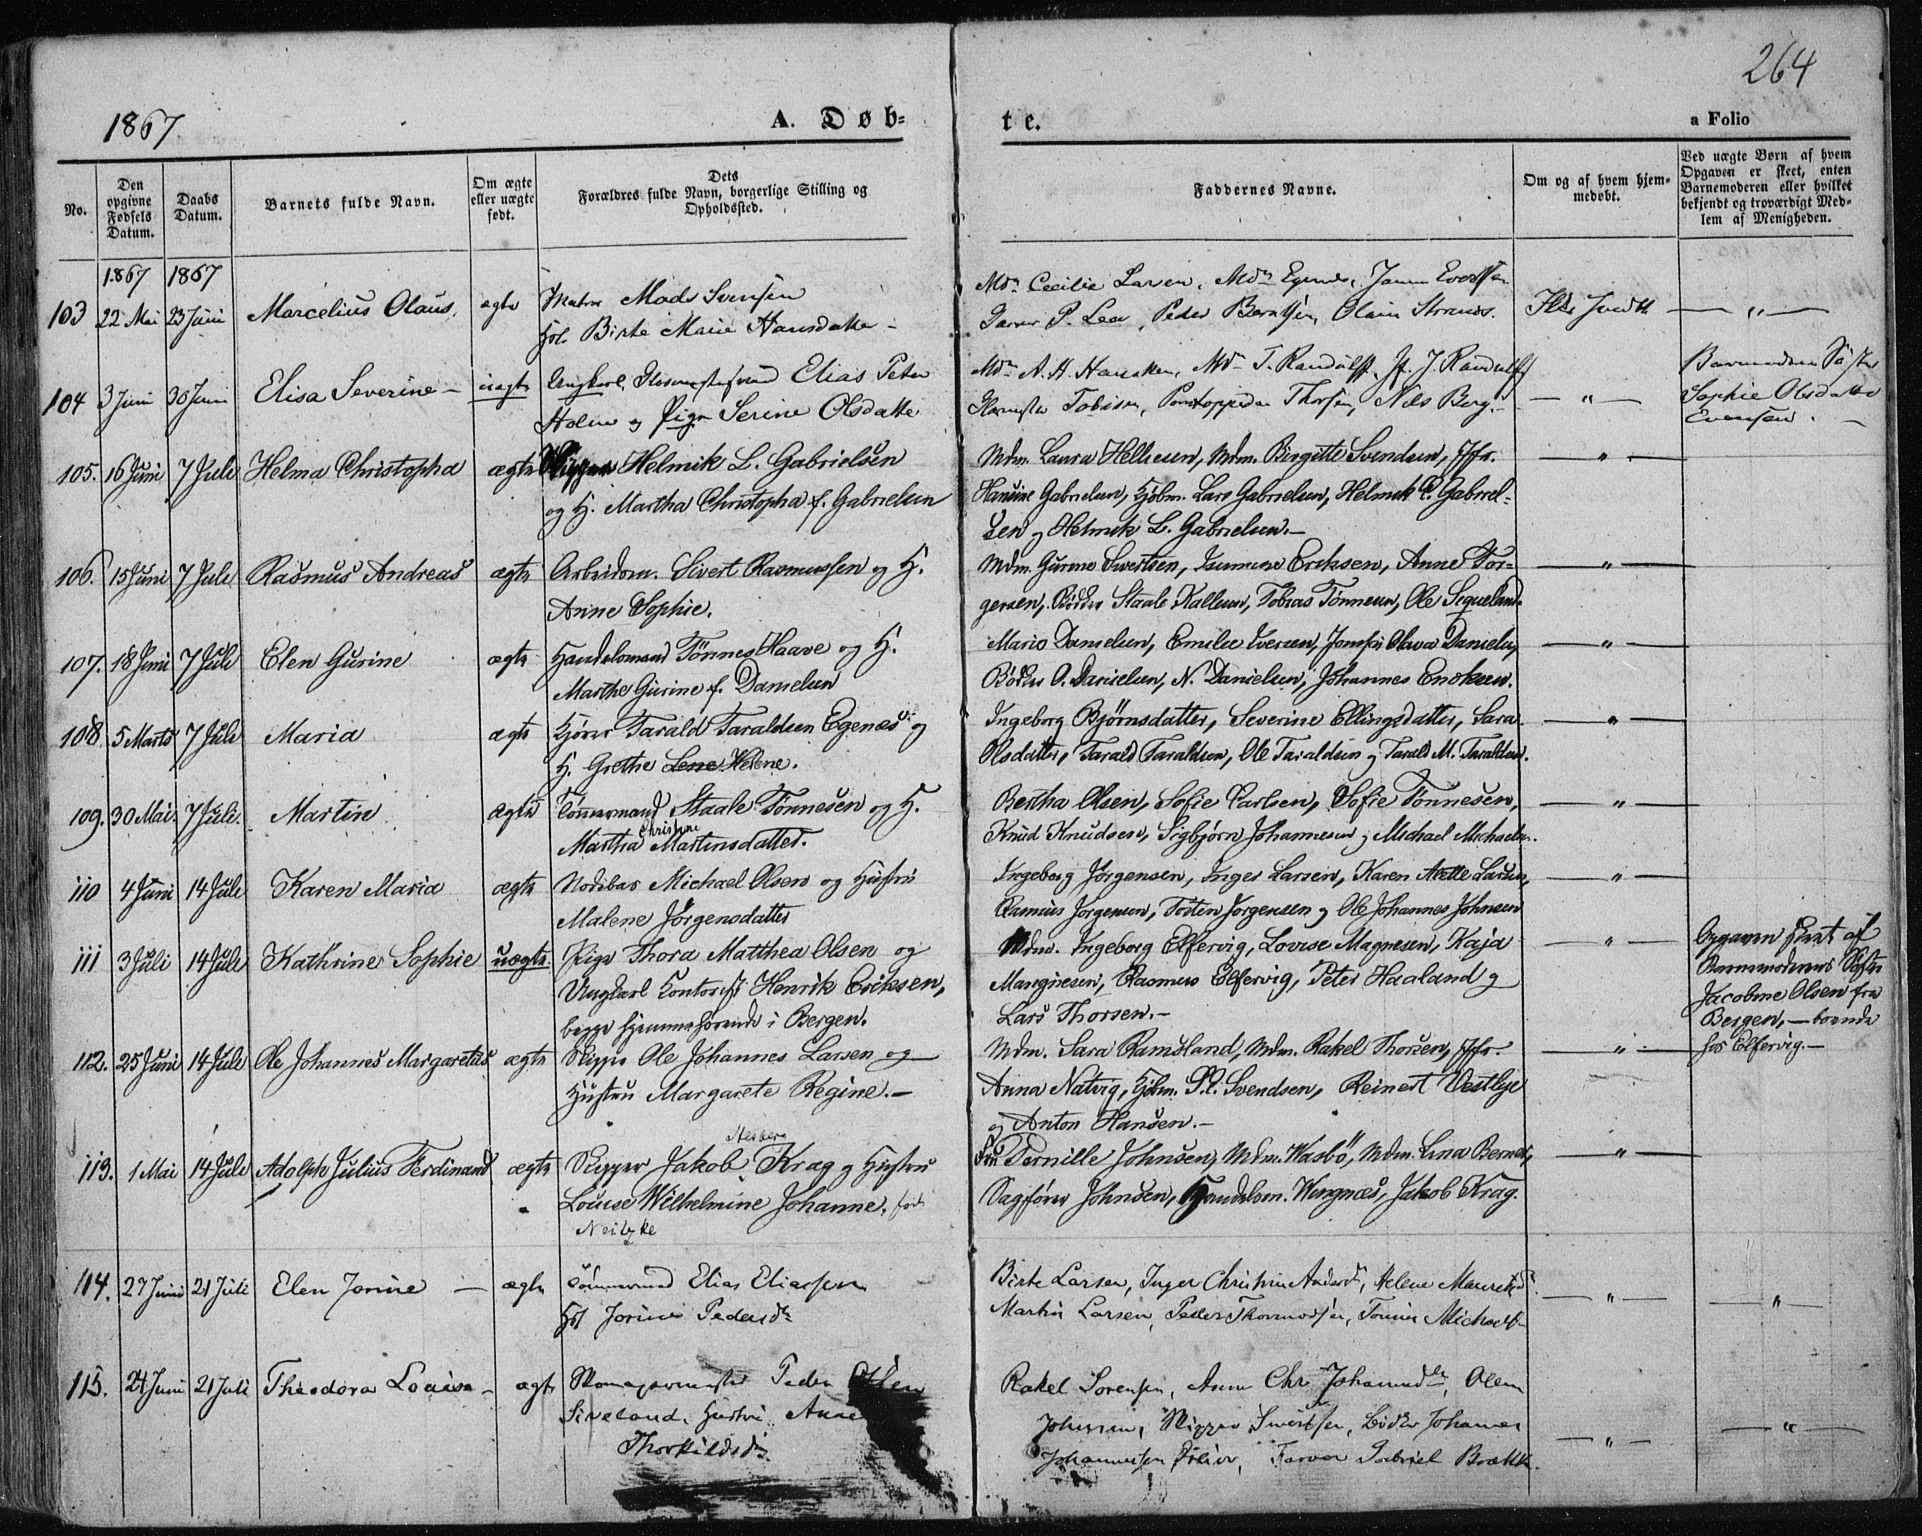 264
1867.
A. Døb-
te.
a Folio
No.
Den opgivne Fødsels Datum.
Daabs Datum.
Barnets fulde Navn.
Om ægte eller uægte født.
Dets Forældres fulde Navn, borgerlige Stilling og Opholdssted.
Faddernes Navne.
Om og af hvem hjemmedøbt.
Ved uægte Børn af hvem Opgaven er skeet, enten Barnemoderen eller hvilket bekjendt og troværdigt Medlem af Menigheden.
1867 1867
103 22 Mai 23 Juni Marcelius Olaus. ægte Mads Svensen
H. Birte Marie Hansdatte –
Mdm Cecilie Larsen, Mdm
P. Lea, Peder Berntsen, Olaus
104 3 Juni 30 Juni Elisa Severine – uægte Ungkarl Elias Peter
Holm og Pige Serine Olsdatte
Mdm A. H. Hansken, Mdm T. Randulff, Jf. J. Randulff
Tobisen, Thorsen, Nils Berg.
Søster
Sophie Olsdatter
Evensen.
105. 16 Juni 7 Juli Helma Christopha ægte Skipper Helmik L. Gabrielsen
og H. Martha Christopha f. Gabrielsen
Mdm. Laura Helliesen, Mdm. Birgitte Svendsen, Jffr.
Hansine Gabrielsen, Kjøbm. Lars Gabrielsen, Helmik C. Gabriel-
sen og Helmik L. Gabrielsen.–
106. 15 Juni 7 Juli Rasmus Andreas ægte Arbeidsm. Sivert Rasmussen og H.
Anne Sophie.
Mdm. Gurine Sivertsen, Eriksen, Anne Tor-
gersen, Bødker Staale Kallesen, Tobias Tønnesen, Ole Sequeland.
107. 18 Juni 7 Juli Elen Gurine ægte Handelsmand Tønnes Haave og H.
Marthe Gurine f. Danielsen
Marie Danielsen, Emilie Iversen, Jomfru Olava Danielsen,
Bødker O. Danielsen, N. Danielsen, Johannes Eriksen.
108. 5 Marts 7 Juli Maria ægte Kjører Tarald Taraldsen Egenæs og
H. Grethe Lene Helene.
Ingeborg Bjørnsdatter, Severine Ellingsdatter, Sara
Olsdatter, Tarald Taraldsen, Ole Taraldsen og Tarald M. Taraldsen.
109. 30 Mai 7 Juli. Martin ægte Tømmermand Staale Tønnesen og H.
Martha Christine Martinsdatter.
Bertha Olsen, Sofie Carlsen, Sofie Tønnesen,
Knud Knudsen, Sigbjørn Johannesen og Michael Michaels.
110 4 Juni 14 Juli Karen Maria ægte Michael Olsen og Hustru
Malene Jörgensdatter
Ingeborg Jörgensen, Inger Larsen, Karen Larsen,
Rasmus Jorgensen, Torsten Jorgensen og Ole Johannes Johnsen
111 3 Juli 14 Juli Kathrine Sophie uægte. Pige Thora Matthea Olsen og
Ungkarl Kontorist Henrik Eriksen,
begge hjemmehørende i Bergen.
Mdm. Ingeborg Elfervig, Lovise Magnesen, Kaja
Mangnesen, Rasmus Elfervig, Peter Haaland og
Lars Thorsen.–
Opgaven skeet af
Barnemoderens Søster
Jacobine Olsen fra
Bergen, – boende
hos Elfervig.–
112. 25 Juni 14 Juli Ole Johannes Margaretus ægte Skipper Ole Johannes Larsen og
Hustru Margarete Regine.–
Mdm. Sara Ramsland, Mdm. Rakel Thorsen, Jffr.
Anna Natvig, Kjøbm. P. Svendsen, Reinert Vestlye
og Anton Hansen.–
113. 1 Mai 14 Juli Adolph Julius Ferdinand ægte Skipper Jakob Krag og Hustru
Louise Wilhelmine Johanne, født
Neitzke
Fru Pernille Johnsen, Mdm. Wasbö, Mdm. Lina Berner,
Sagfører Johnsen, Handelsm. Wingnæs, Jakob Krag.
114. 27 Juni 21 Juli Elen Jorine – ægte Tømmermand Elias Eliassen
Hst Jorine Pedersdr
Birte Larsen, Inger Christine Andersdr, Helene
Martin Larsen, Peder Thormodsen, Tønnes Michaels
115. 24 Juni 21 Juli Theodora Louise – ægte Skomagermester Peder Olsen
Sireland, Hustru Anne
Thorkildsdr.
Rakel Sorensen, Anne Chr. Johannesdtr, Olene
Johnsen, Skipper Sivertsen, Bødker Johannes
Johannesen, Farver Gabriel